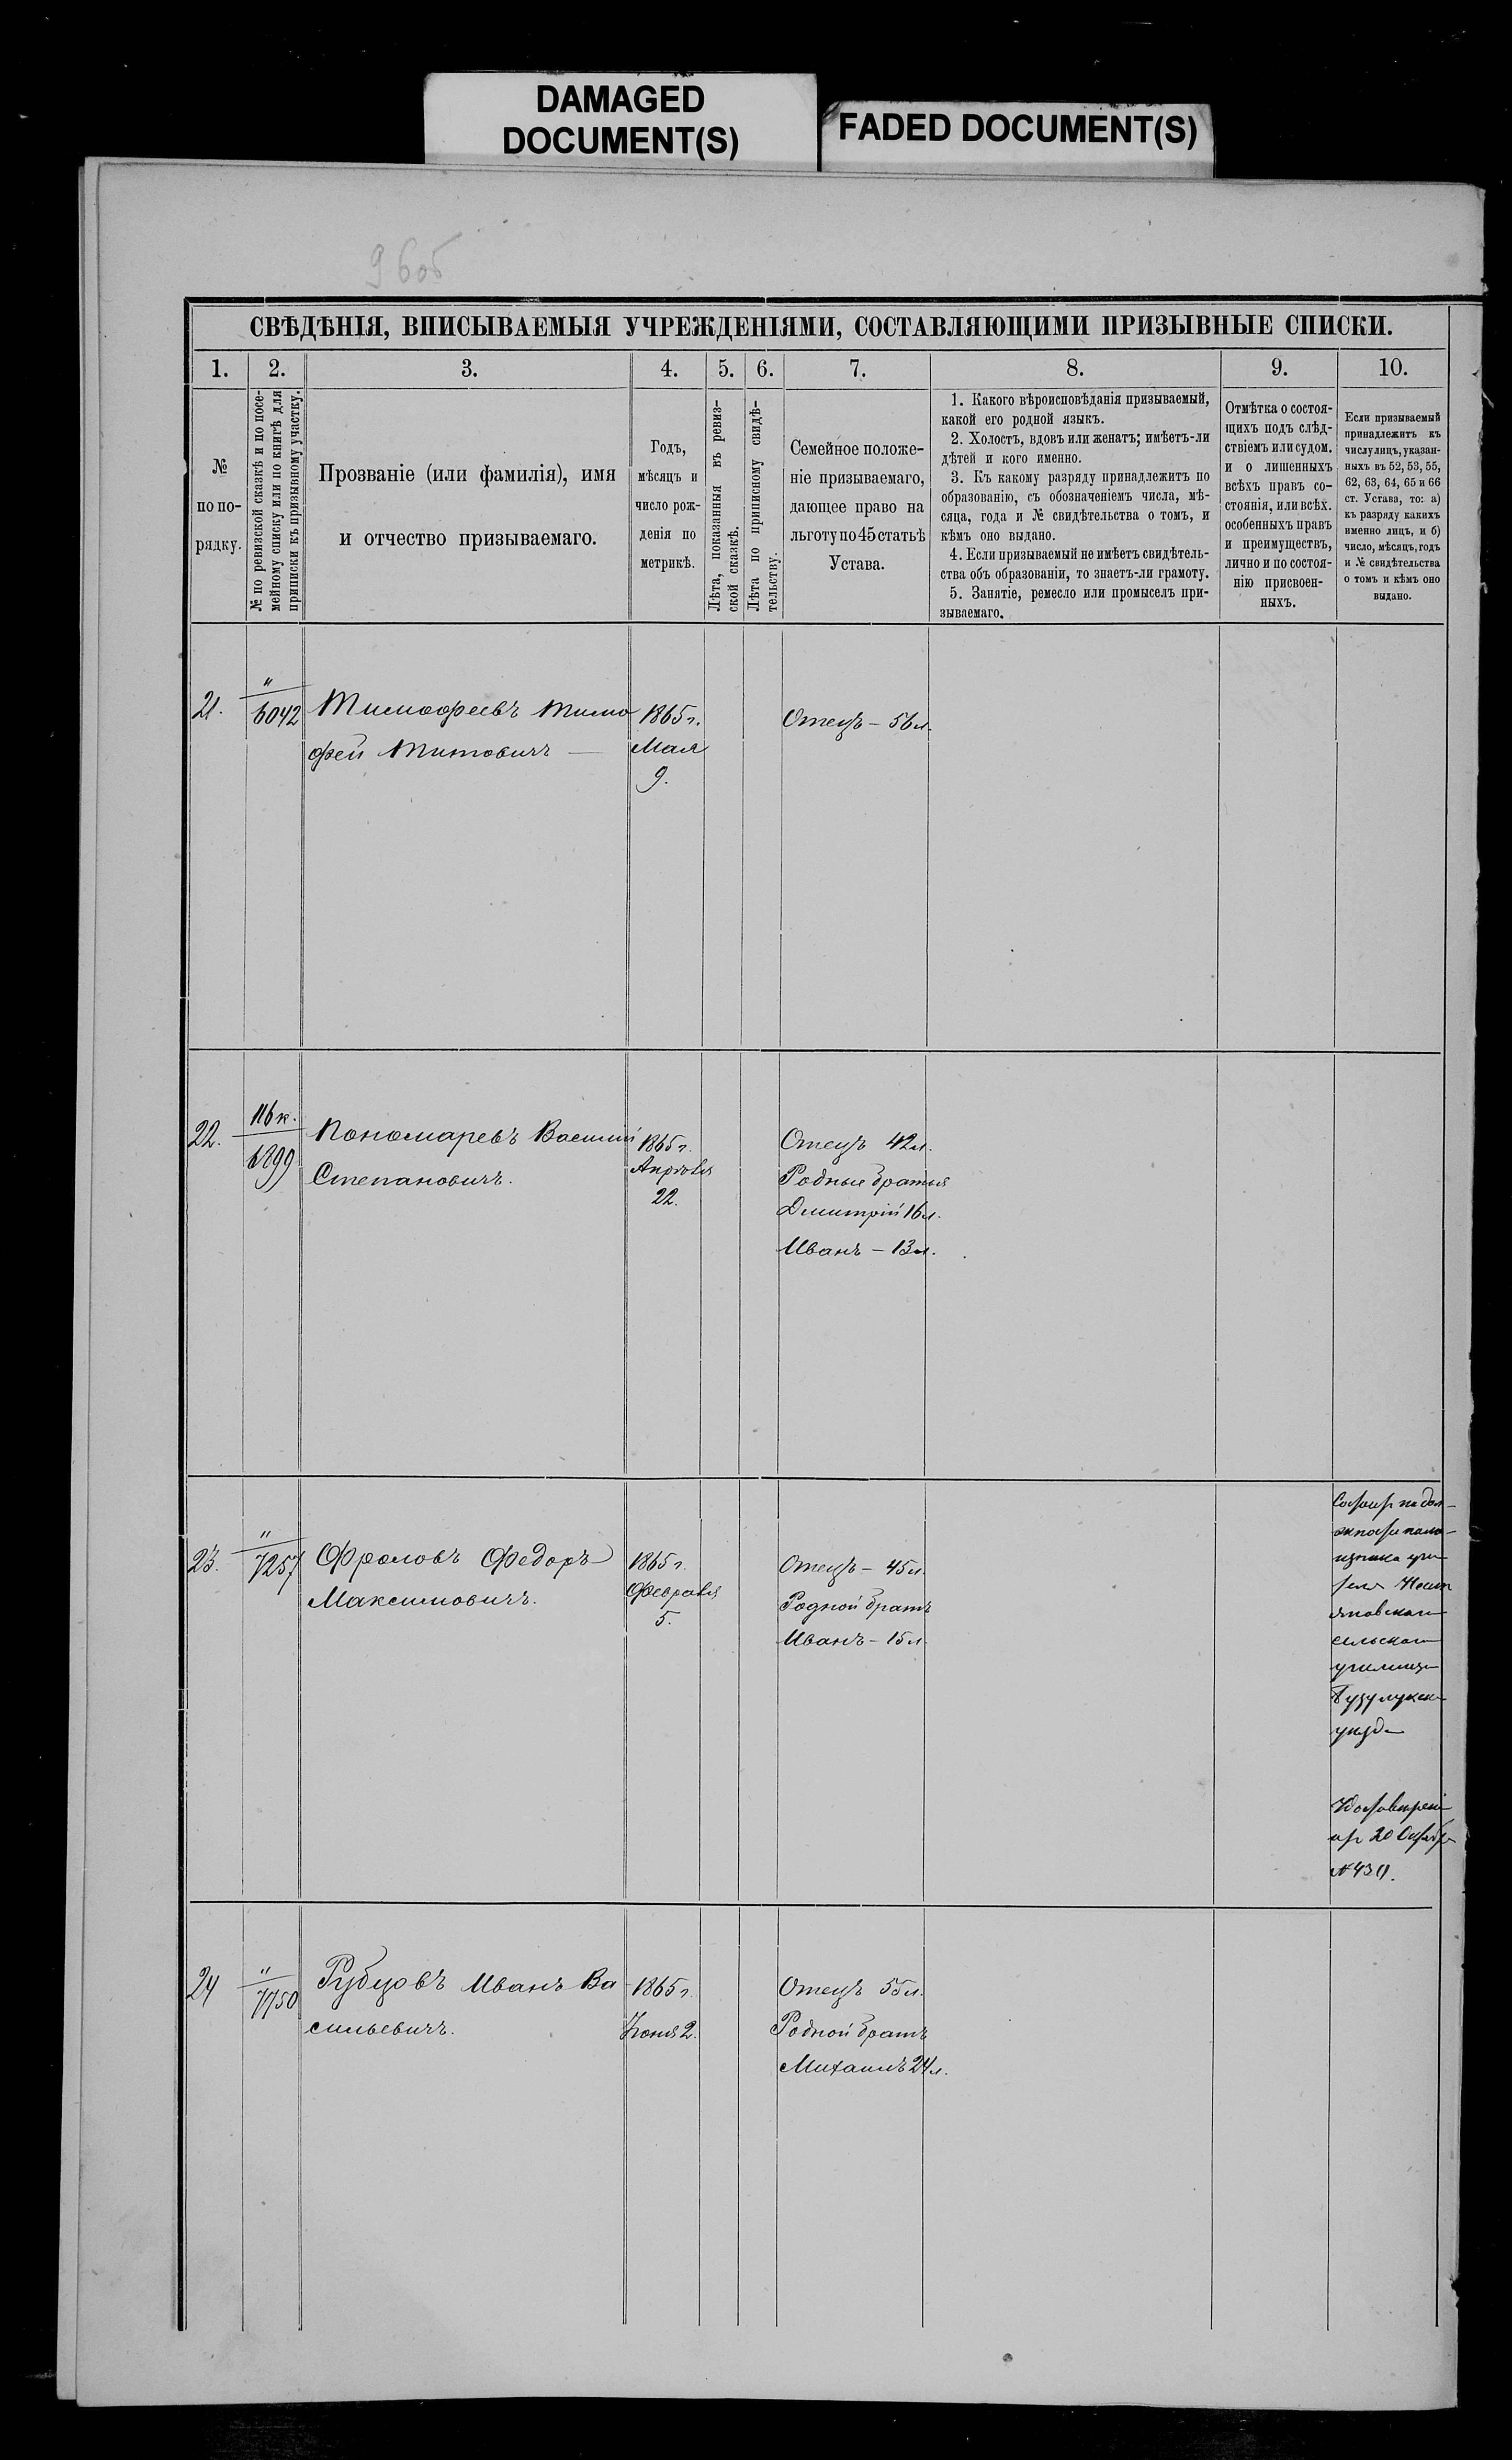 DAMAGED
DOCUMENT(S)
FADED DOCUMENT(S)
9 боб
СВѢДѢНІЯ, ВПИСЫВАЕМЫЯ УЧРЕЖДЕНІЯМИ, СОСТАВЛЯЮЩИМИ ПРИЗЫВНЫЕ СПИСКИ.
1.
2.
3.
4.
5.
6.
7.
8.
9.
10.
№
по по-
рядку.
№ по ревизской сказкѣ и по посе-
мейному списку или по книгѣ для
приписки къ призывному участку.
Прозваніе (или фамилія), имя
и отчество призываемаго.
Годъ,
мѣсяцъ и
число рож-
денія по
метрикѣ.
Лѣта, показанныя въ ревиз-
ской сказкѣ.
Лѣта по приписному свидѣ-
тельству.
Семейное положе-
ніе призываемаго,
дающее право на
льготу по 45 статьѣ
Устава.
1. Какого вѣроисповѣданія призываемый,
какой его родной языкъ.
2. Холостъ, вдовъ или женатъ; имѣетъ-ли
дѣтей и кого именно.
3. Къ какому разряду принадлежитъ по
образованію, съ обозначеніемъ числа, мѣ-
сяца, года и № свидѣтельства о томъ, и
кѣмъ оно выдано.
4. Если призываемый не имѣетъ свидѣтель-
ства объ образованіи, то знаетъ-ли грамоту.
5. Занятіе, ремесло или промыселъ при-
зываемаго.
Отмѣтка о состоя-
щихъ подъ слѣд-
ствіемъ или судом.
и о лишенныхъ
всѣхъ правъ со-
стоянія, или всѣх.
особенныхъ правъ
и преимуществъ,
лично и по состоя-
нію присвоен-
ныхъ.
Если призываемый
принадлежитъ къ
числу лицъ, указан-
ныхъ въ 52, 53, 55,
62, 63, 64, 65 и 66
ст. Устава, то: а)
къ разряду какихъ
именно лицъ, и б)
число, мѣсяцъ, годъ
и № свидѣтельства
о томъ и кѣмъ оно
выдано.
21.
"
6042
Тимофеевъ Тимо
фей Титовичъ —
1865 г.
Мая
9.
Отецъ – 56 л.
22.
116 к.
6899
Пономаревъ Василий
Степановичъ.
1865 г.
Апрѣля
22.
Отецъ 42 л.
Родные братья
Дмитрій 16 л.
Иванъ – 13 л.
23.
"
7257
Фроловъ Федоръ
Максимовичъ.
1865 г.
Февраля
5.
Отецъ – 45 л.
Родной братъ
Иванъ – 15 л.
сельскаго
училища
Бузулукск
уѣзда
20 Октяб
24
"
7750
Рубцовъ Иванъ Ва
сильевичъ.
1865 г.
Іюня 2.
Отецъ 55 л.
Родной братъ
Михаилъ 24 л.